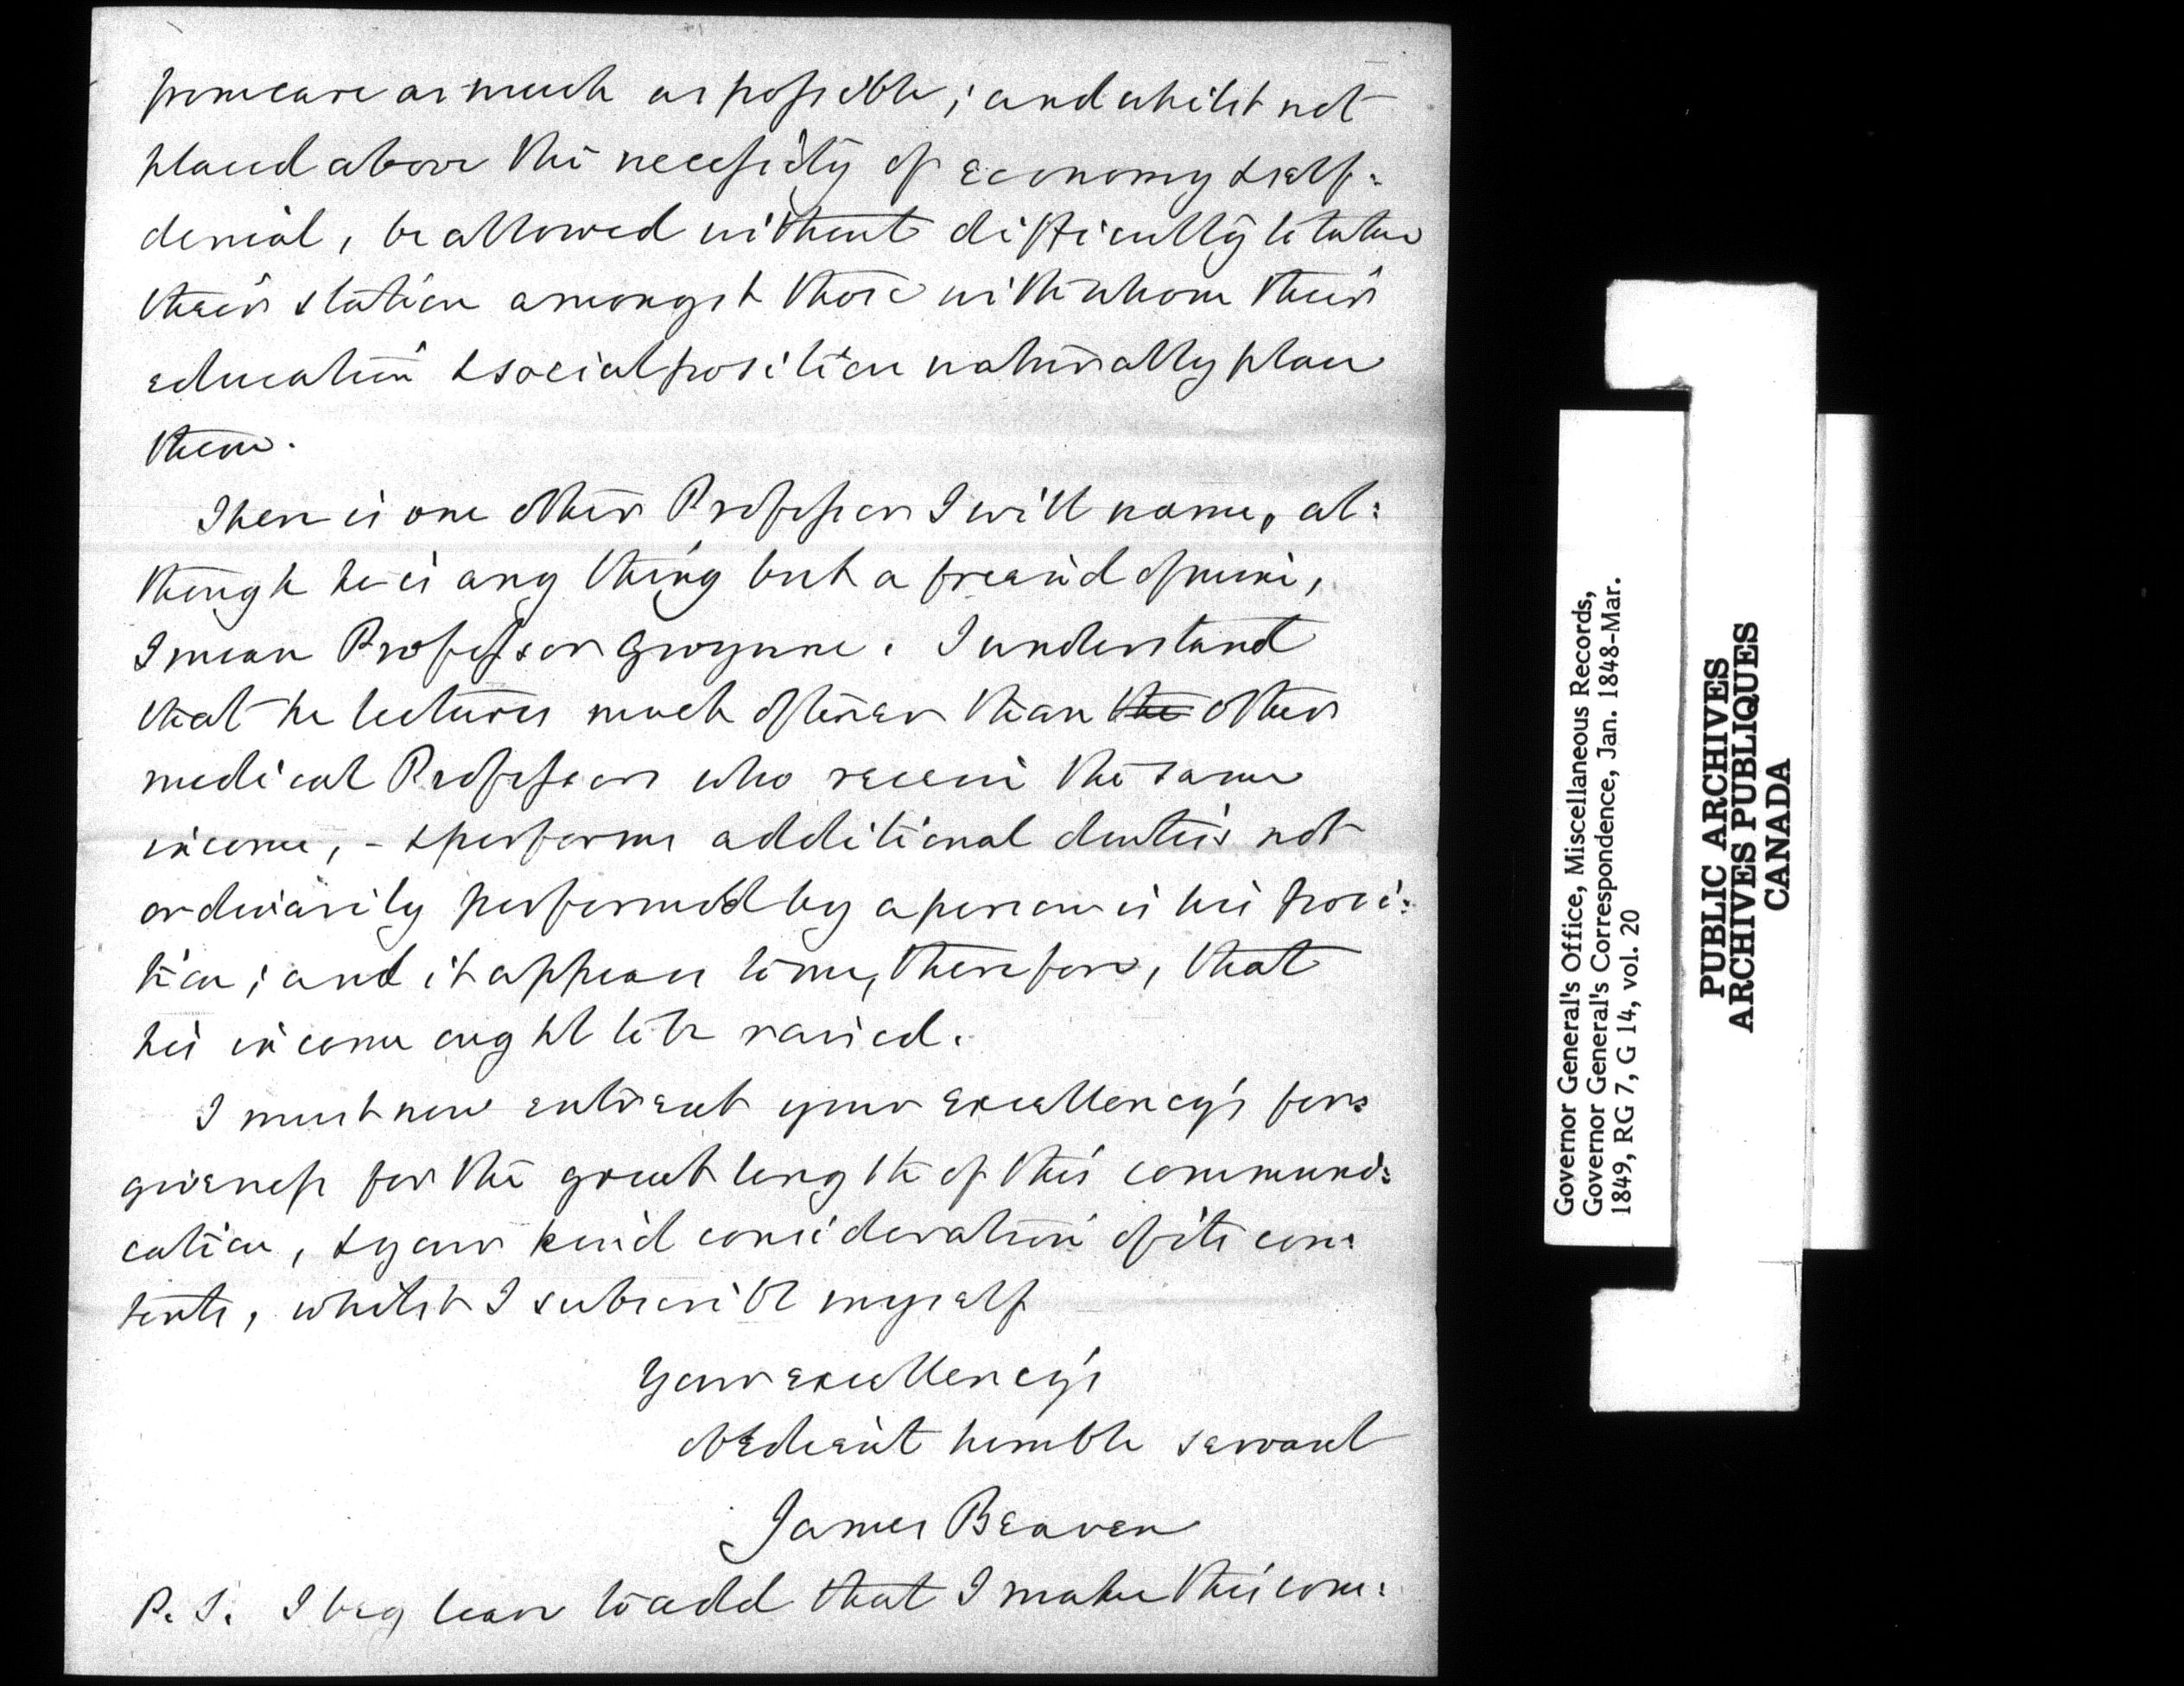 from care as much as possible; and whilst not
placed above the necessity of economy & self=
denial, be allowed without difficulty to take
their station amongst those with whom their
education & social position naturally place
them.
There is one other Professor I will name, al=
though he is any thing but a freind of mine,
I mean Professor Gwynne. I understand
that he lectures much oftener than the other
medical Professors who receive the same
income, - & performs additional duties not
ordinarily performed by a person in his posi=
tion; and it appears to me, therefore, that
his income ought to be raised.
I must now entreat your Excellency's for=
giveness for the great length of this communi=
cation, & your kind consideration of its con=
tents, whilst I subscribe myself
Your Excellency's
obedient humble servant
James Beaven
P.S. I beg leave to add that I make this com=
Governor General's Office, Miscellaneous Records,
Governor General's Correspondence, Jan. 1848-Mar.
1849, RG 7, G 14, vol. 20
PUBLIC ARCHIVES
ARCHIVES PUBLIQUES
CANADA